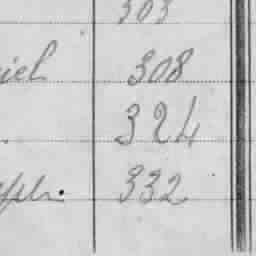 303
iel 308
324
ph. 332